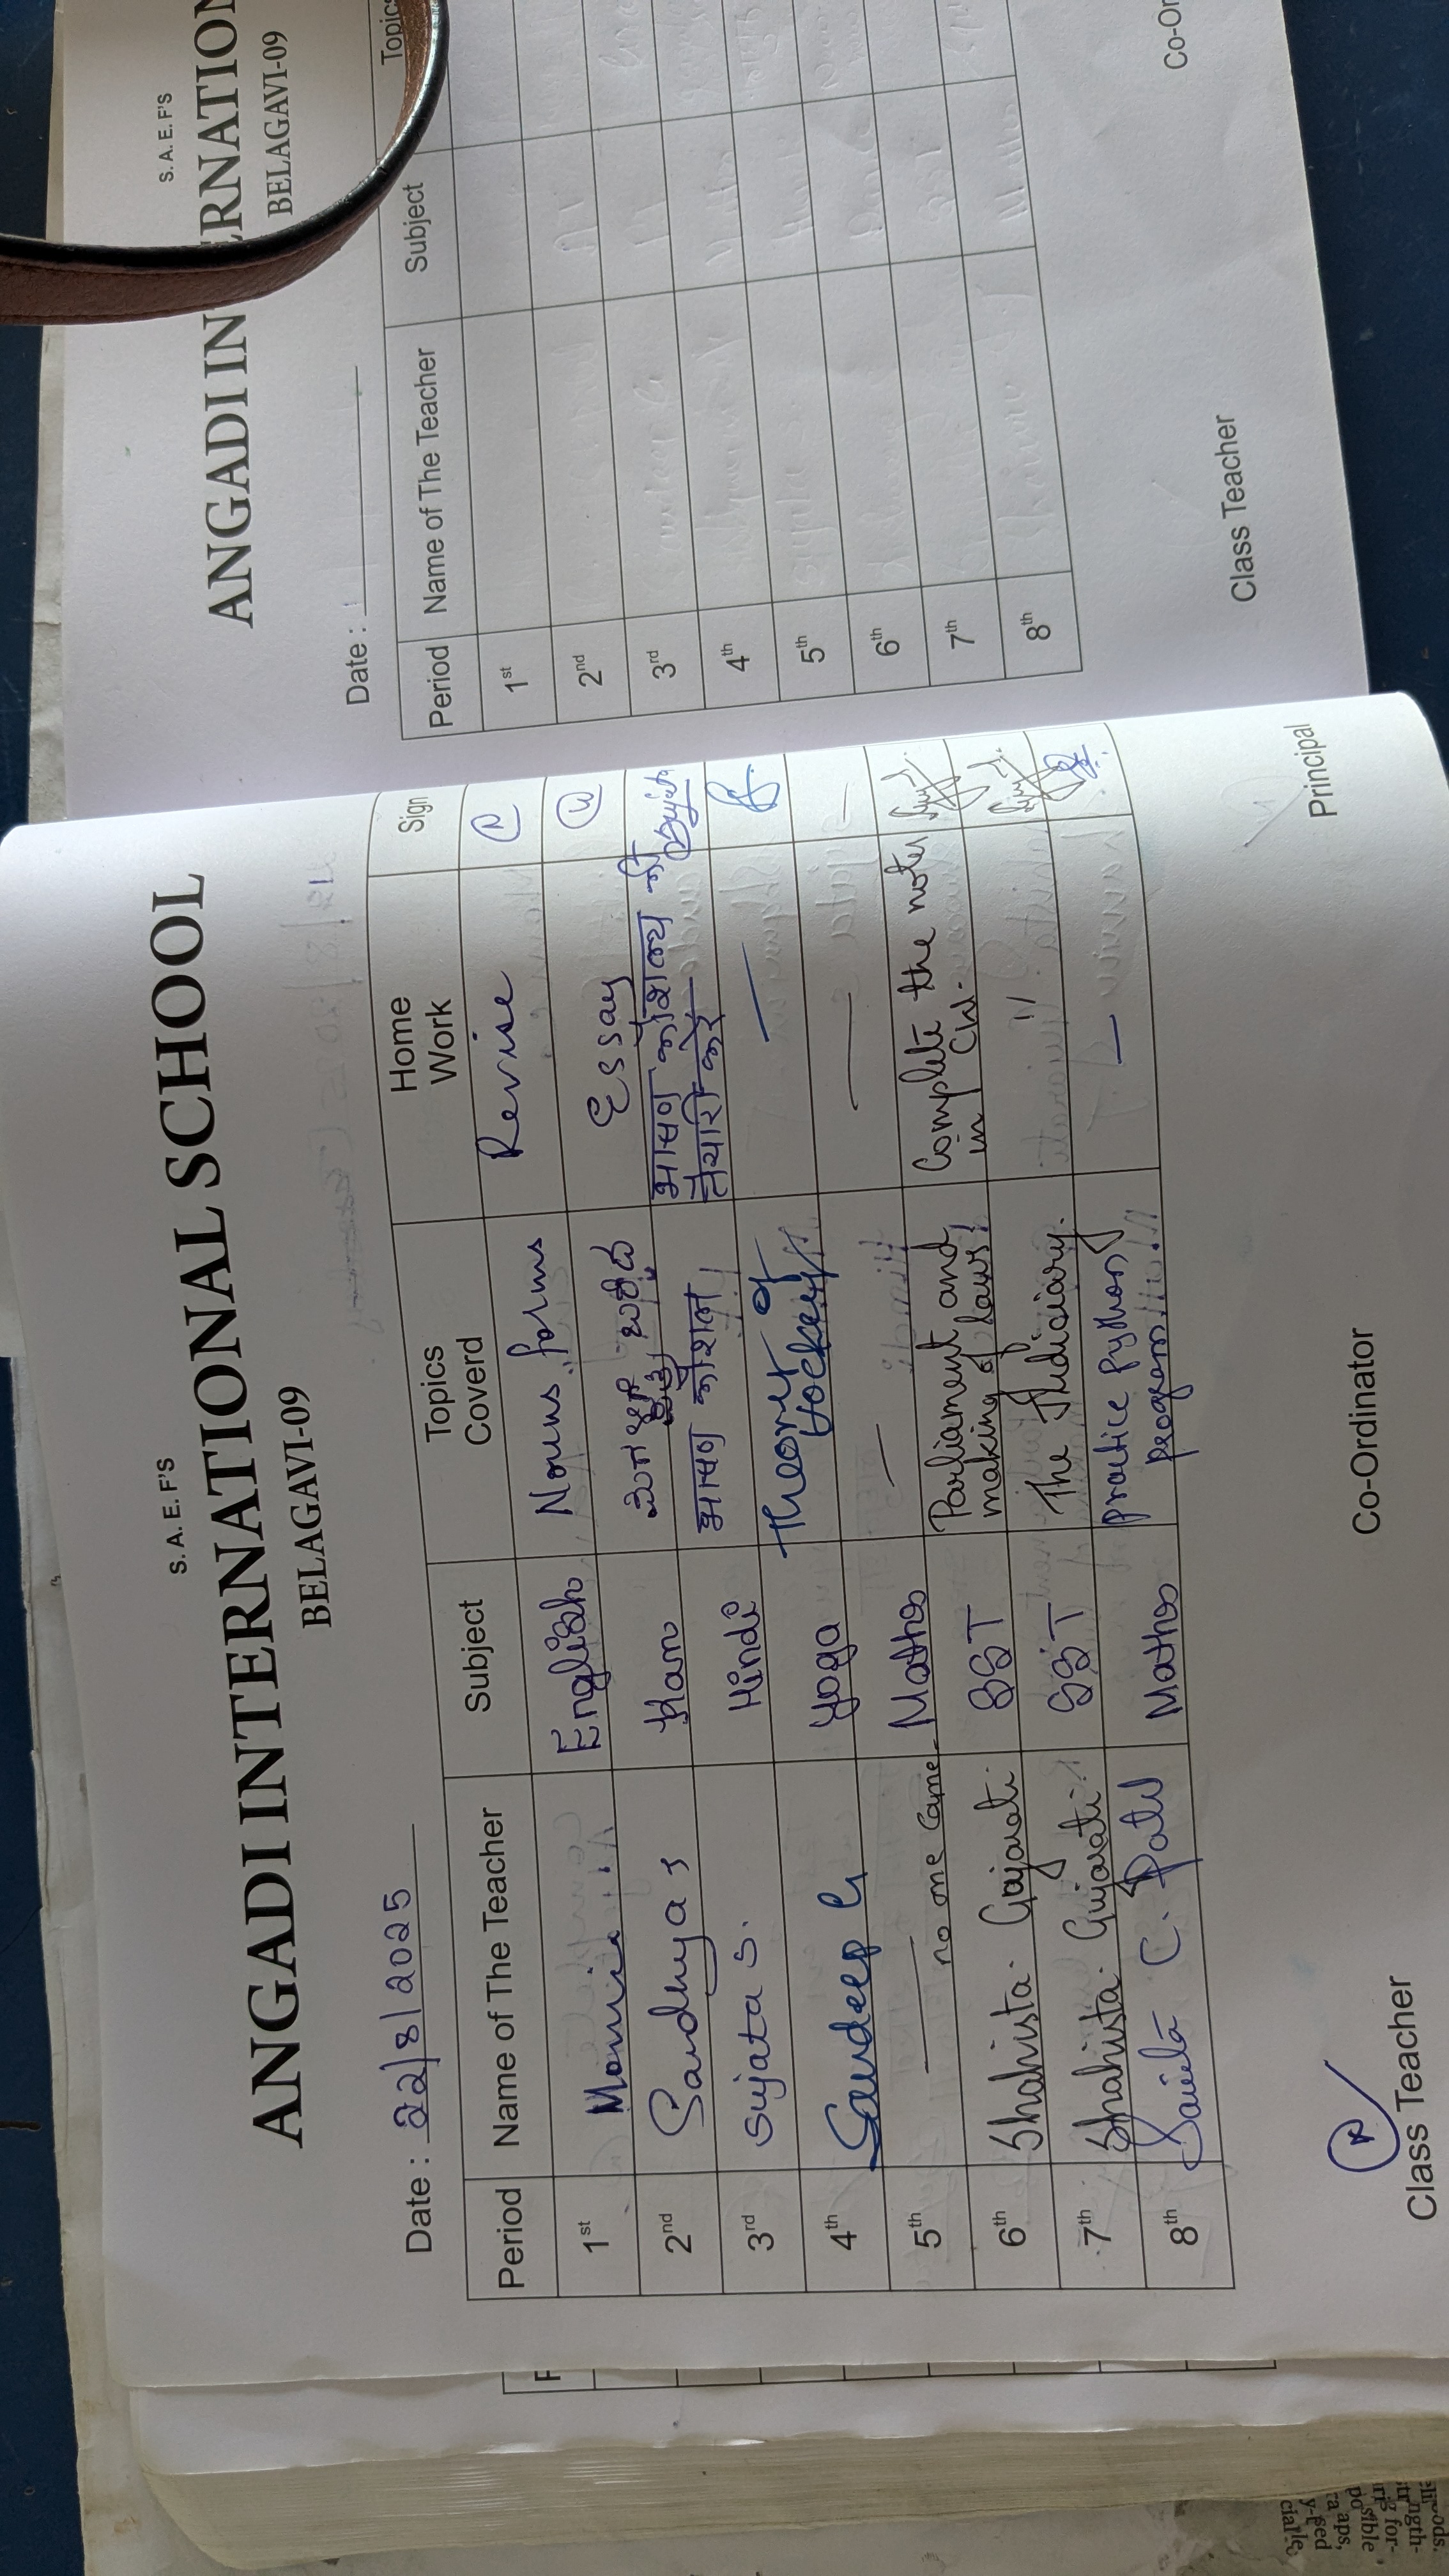 S. A. E. F'S
ANGADI INTERNATIONAL SCHOOL
BELAGAVI-09
Date : 22/8/2025
Period Name of The Teacher Subject Topics Coverd Home Work Sign
1st English Nouns forms Revise
2nd Sandhya S Kan Essay
3rd Sujata S. Hindi भाषण कौशल भाषण कौशल्य की तैयारी करे
4th Sandeep G Yoga Theory of Hockey —
5th — no one came Maths — — —
6th Shahista. Gujarati. SST Parliament and making of laws Complete the notes in CW.
7th Shahista. Gujarati. SST The Judiciary. "
8th Savita C. Patil Maths practice python program —
Class Teacher Co-Ordinator Principal
S. A. E. F'S
BELAGAVI-09
Date :
Period Name of The Teacher Subject Topics
1st
2nd
3rd
4th
5th
6th
7th
8th
Class Teacher